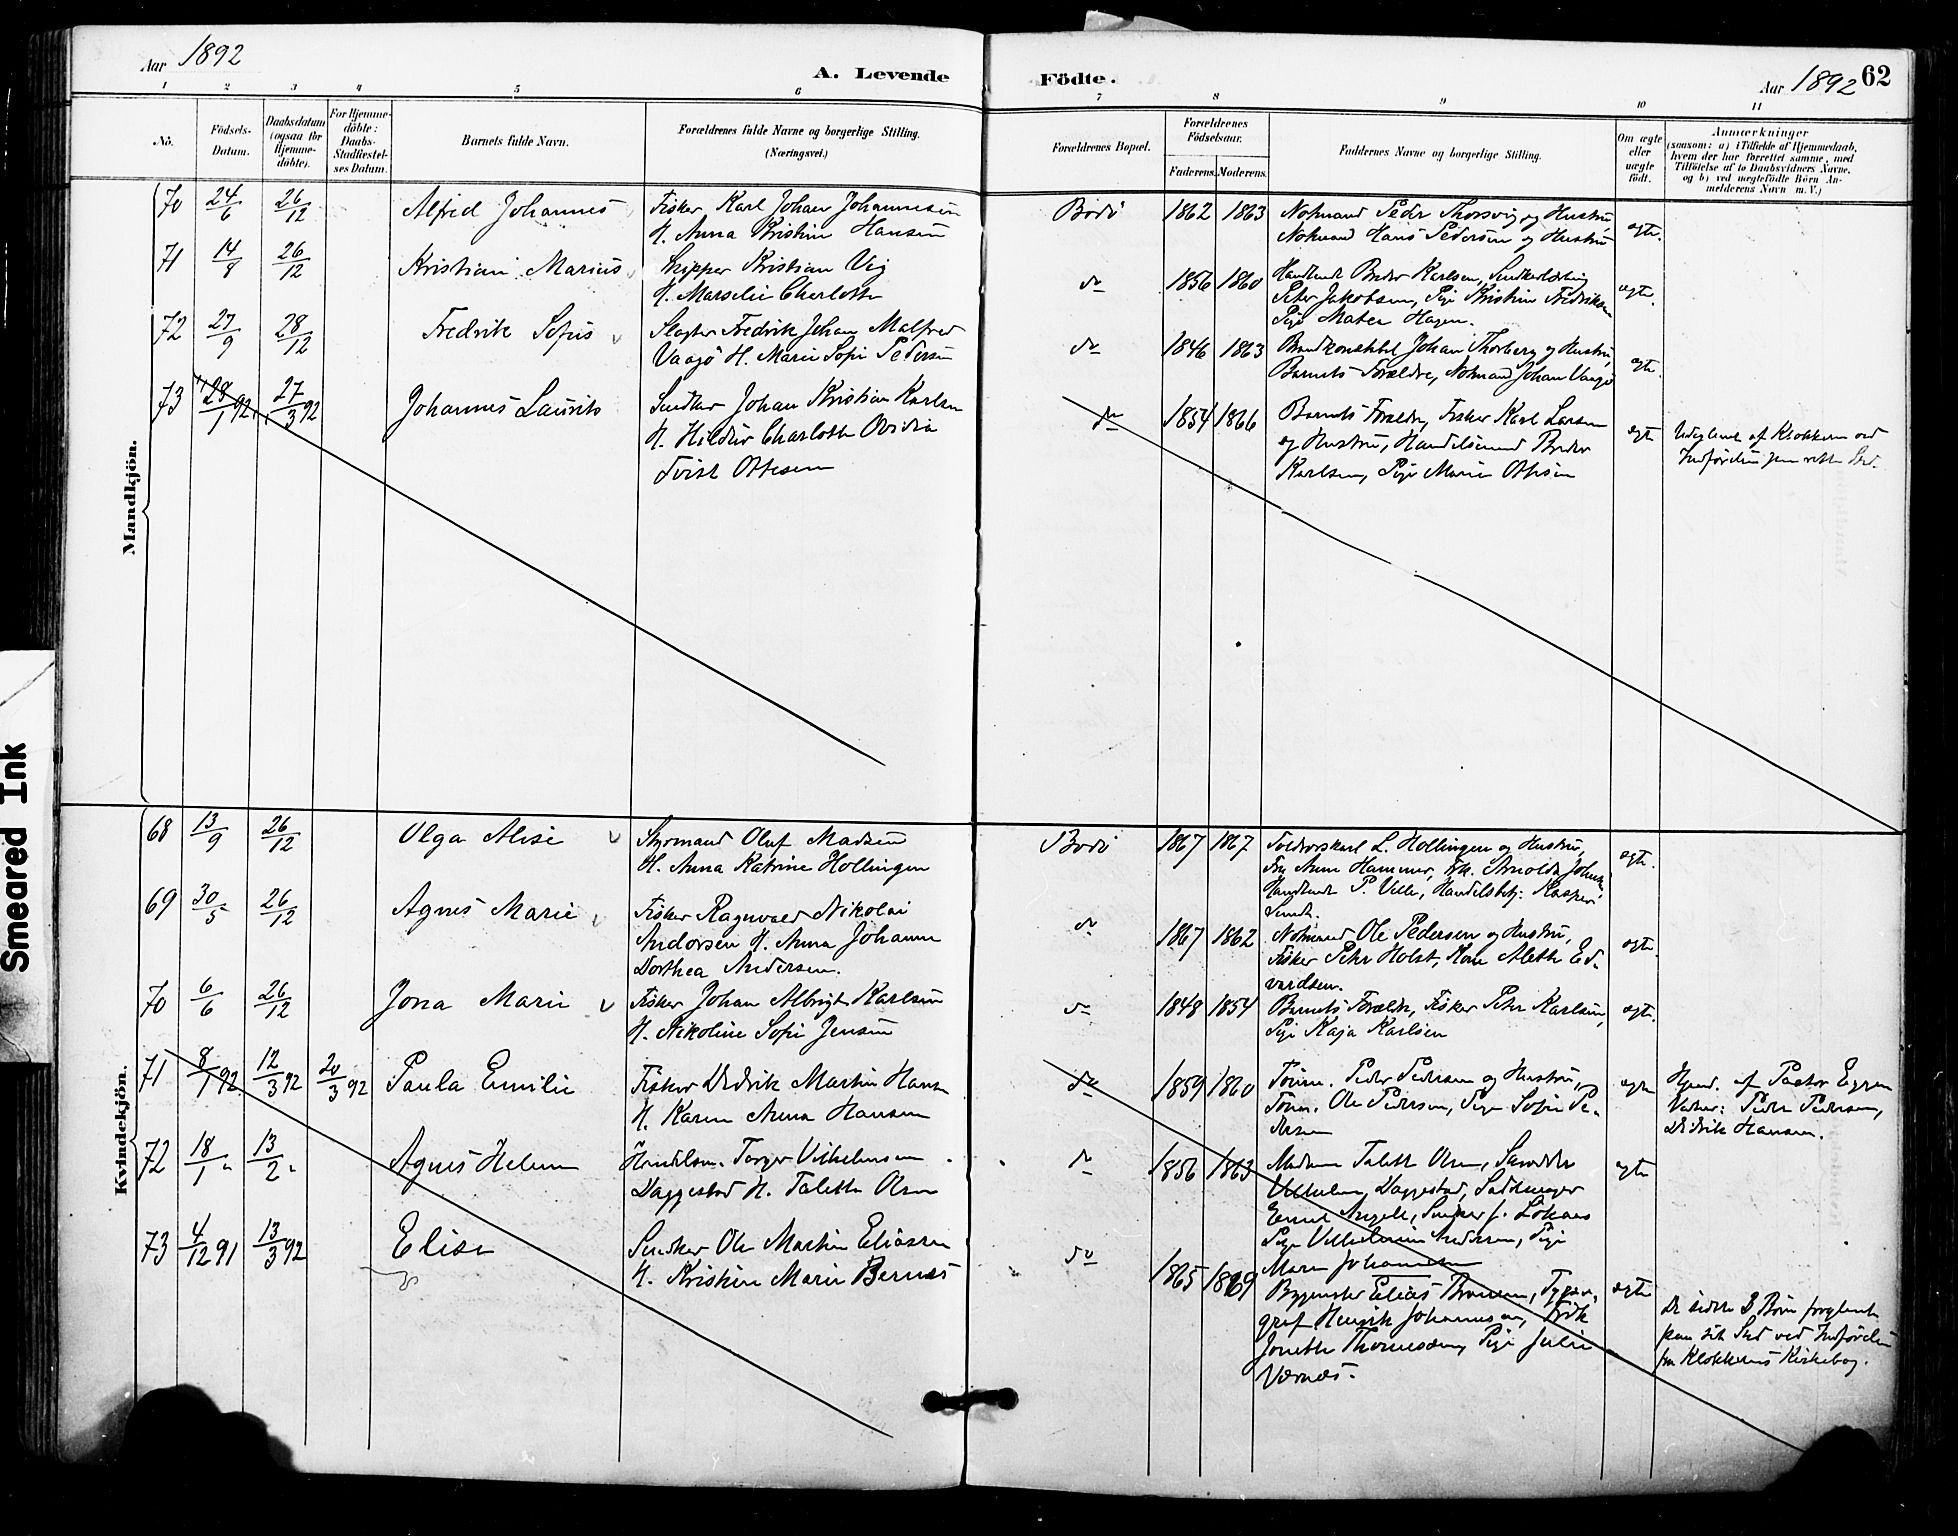 Aar 1892
A. Levende
Födte.
Aar 1892 62
1 2 3 4 5 6 7 8 9 10 11
No.
Födsels-
Datum.
Daabsdatum
(ogsaa for
Hjemme-
döbte).
For Hjemme-
döbte:
Daabs-
Stadfæstel-
ses Datum.
Barnets fulde Navn.
Forældrenes fulde Navne og borgerlige Stilling.
(Næringsvei.)
Forældrenes Bopæl.
Forældrenes
Födselsaar.
Faderens. Moderens.
Faddernes Navne og borgerlige Stilling.
Om ægte
eller
uægte
födt.
Anmærkninger
(saasom: a) i Tilfælde af Hjemmedaab,
hvem der har forrettet samme, med
Tilföielse af to Daabsvidners Navne,
og b) ved uægtefödte Börn An-
melderens Navn m. V.)
Mandkjön.
70 24/6 26/12 Alfred Johannes
Fisker Karl Johan Johannesen
H. Anna Kristine Hansen
Bodö 1862 1863
Notmand Peder Thorsvig og Hustru,
Notmand Hans Pedersen og Hustru
ægte.
71 14/8 26/12 Kristian Marius
Skipper Kristian Vig
H. Marselie Charlotte
do 1856 1860
Peter Jakobsen, Pige Kristine Fredriksen
Pige Matea Hagen.
ægte.
72 27/9 28/12 Fredrik Sofus
Slagter Fredrik Johan Malfred
Vaagö H. Marie Sofie Pedersen
do 1846 1863
Brandkonstabel Johan Thorberg og Hustru,
Barnets Forældre, Notmand Johan Vaagö
ægte.
73 28/1 92. 27/3 92 Johannes Laurits
Snedker Johan Kristian Karlsen
H. Hildur Charlotte Ovidia
Tvist Ottesen
do 1854 1866
Barnets Forældre, Fisker Karl Larsen
og Hustru, Handelsmand Peder
Karlsen, Pige Marie Ottesen
ægte
Udeglemt af Klokkeren ved
Indförelsen paa rette Sted.
Kvindekjön.
68 13/9 26/12 Olga Alise
Styrmand Oluf Madsen
H. Anna Katrine Hollingen
Bodö 1867 1867
Toldrorskarl L. Hollingen og Hustru,
Fru Anne Hammer, Frk. Arnolda Johnsen
Handlende P. Ville, Handelsbetj. Kasper
ægte.
69 30/5 26/12 Agnes Marie
Fisker Ragnvald Nikolai
Andorsen H. Anna Johanna
Dorthea Andersen.
do 1867 1862
Notmand Ole Pedersen og Hustru,
Fisker Peter Holst, Kone Alette Ed-
vardsen.
ægte.
70 6/6 26/12 Jona Marie
Fisker Johan Albrigt Karlsen
H. Nikoline Sofie Jensen
do 1848 1854
Barnets Forældre, Fisker Peter Karlsen,
Pige Kaja Karlsen
ægte.
71 8/1 92. 12/3 92 20/3 92 Paula Emilie
Fisker Didrik Martin Hansen
H. Karen Anna Hansen
do 1859 1860
Tömm. Peder Pedersen og Hustru,
Tömm. Ole Pedersen, Pige Sofie Pe-
dersen
ægte
Hjemd. af Pastor Eggen
Vidner: Peder Pedersen,
Didrik Hansen.
72 18/1 " 13/2 " Agnes Helene
Handelsm. Torger Vilhelmsen
Daggestad H. Talette Olsen
do 1856 1863
Madam Talette Olsen,
Vilhelm Daggestad, Sadelmager
Pige Vilhelmine Andersen, Pige
Maren Johannesen
ægte
73 4/12 91 13/3 92 Elise
Snedker Ole Martin Eliassen
H. Kristine Marie Bernes
do 1865 1869
Bygmester Elias Thomesen, Typo-
graf Henrik Johannesen, Frk
Jonette Thomesen, Pige Julie
Værnes.
ægte
De sidste 3 Börn forglemt
paa sit Sted ved Indförelsen
fra Klokkerens Kirkebog.
Smeared Ink